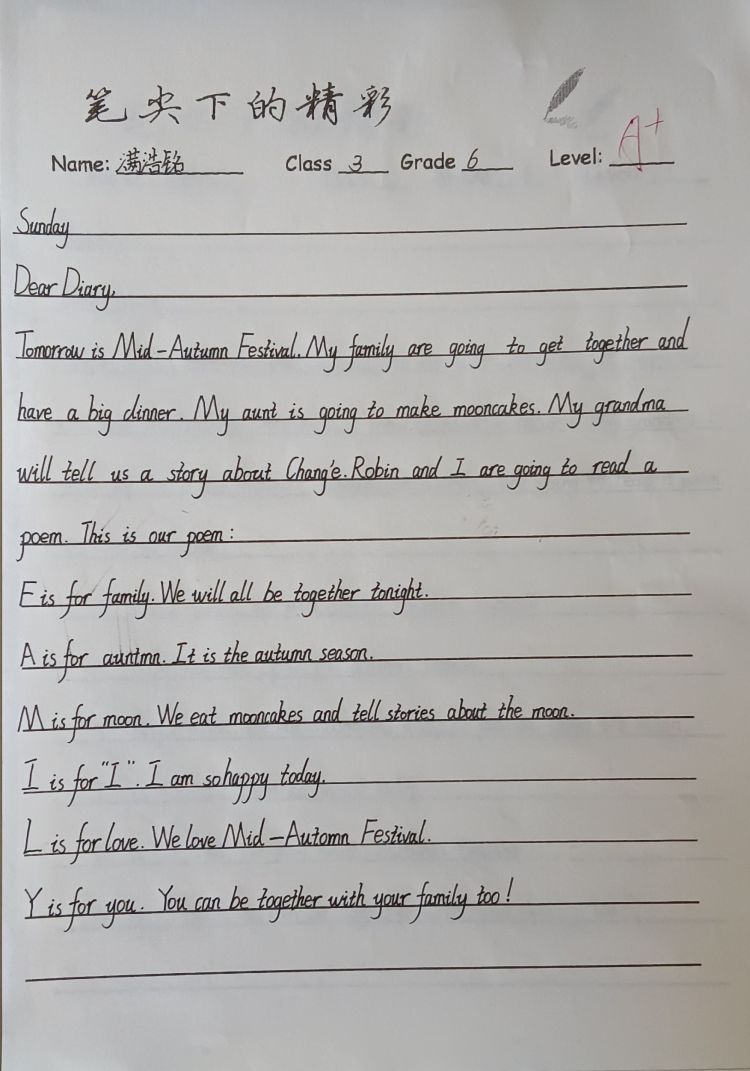 笔尖下的精彩
Name: 满浩铭 Class 3 Grade 6 Level: A+
Sunday
Dear Diary,
Tomorrow is Mid-Autumn Festival. My family are going to get together and
have a big dinner. My aunt is going to make mooncakes. My grandma
will tell us a story about Chang'e. Robin and I are going to read a
poem. This is our poem:
F is for family. We will all be together tonight.
A is for auntmn. It is the autumn season.
M is for moon. We eat mooncakes and tell stories about the moon.
I is for "I". I am so happy today.
L is for love. We love Mid-Automn Festival.
Y is for you. You can be together with your family too!